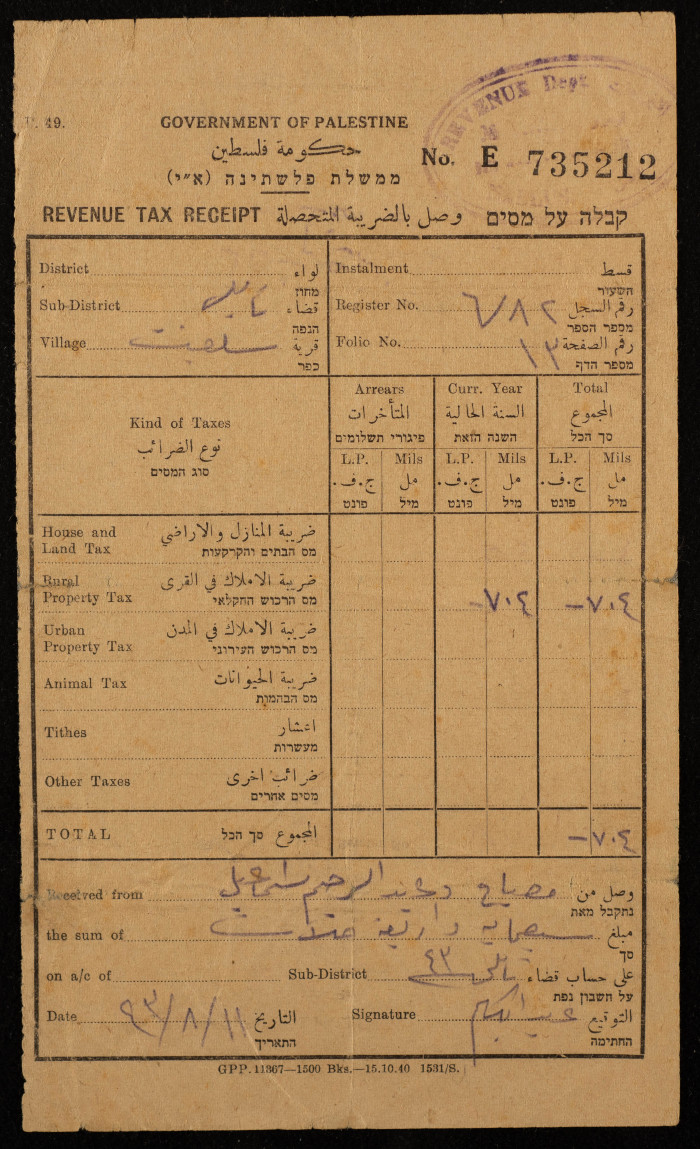 P. 49.
GOVERNMENT OF PALESTINE
حكومة فلسطين
ממשלת פלשתינה (א״י)
REVENUE Dept
No. E 735212
REVENUE TAX RECEIPT وصل بالضريبة المتحصلة קבלה על מסים
District لواء
מחוז
Sub-District نابلس قضاء
הנפה
Village سلفيت قرية
כפר
Instalment قسط
השעור
Register No. ٦٧٨٢ رقم السجل
מספר הספר
Folio No. ١٣ رقم الصفحة
מספר הדף
Kind of Taxes
نوع الضرائب
סוג המסים
Arrears
المتأخرات
פיגורי תשלומים
Curr. Year
السنة الحالية
השנה הזאת
Total
المجموع
סך הכל
L.P. Mils L.P. Mils L.P. Mils
ج.ف. مل ج.ف. مل ج.ف. مل
פונט מיל פונט מיל פונט מיל
House and ضريبة المنازل والاراضي
Land Tax מס הבתים והקרקעות
Rural ضريبة الاملاك في القرى
Property Tax מס הרכוש החקלאי
-٧٠٤ -٧٠٤
Urban ضريبة الاملاك في المدن
Property Tax מס הרכוש העירוני
Animal Tax ضريبة الحيوانات
מס הבהמות
Tithes اعشار
מעשרות
Other Taxes ضرائب اخرى
מסים אחרים
TOTAL סך הכל المجموع -٧٠٤
Received from وصل من عبد الرحيم اسماعيل
נתקבל מאת
the sum of مبلغ سبعماية واربعة ملات
סך
on a/c of Sub-District نابلس ٤٣ على حساب قضاء
על חשבון נפת
Date ٤٣/٨/١١ التاريخ
התאריך
Signature التوقيع
החתימה
GPP. 11367—1500 Bks.—15.10.40 1531/S.